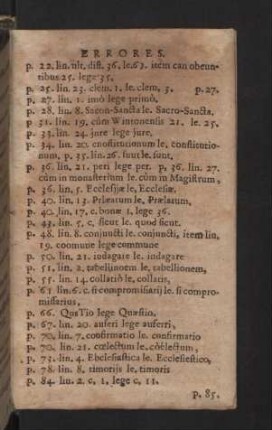 ERRORES.
p. 22. lin. ult. dist. 36. le. 63. item can obeun-
tibus 25. lege 35.
p. 25. lin. 23. clem. 1. le. clem, 3. p. 27.
p. 27. lin. 1. imò lege primò,
p. 28. lin. 8. Sacon-Sancta le. Sacro-Sancta,
p. 31. lin. 19. cúm Wintonensis 21. le. 25.
p. 33. lin. 24. jure lege jure,
p. 34. lin. 20. cnostitutionum le. constitutio-
num, p. 35. lin. 26. fuut le. sunt,
p. 36. lin. 21. peri lege per. p. 36. lin. 27.
cùm in monasterium le. cùm in Magistrum,
p. 36. lin. 5. Ecclesijæ le, Ecclesiæ.
p. 40. lin. 13. Prlæarum le, Prælatum,
p. 40. lin. 17. c. bonæ 1. lege 36.
p. 43. lin. 5. c, sicut le. quod sicut.
p. 48. lin. 8. conjuncti le. conjunctis, item lin,
19. coomune lege commune
p. 50. lin. 21. iudagare le. indagare
p. 51. lin. 2. tabelliinorm le. tabellionem,
p. 55. lin. 14. collatiõ le, collatis,
p. 61 lin. 6. c. si compromisiarij le. si compro-
missarius,
p. 66. QuæTio lege Quæstio,
p. 67. lin. 20. auferi lege auferri,
p. 70. lin. 7. confirmatio le. confirmatio
p. 70. lin. 21. cœlectum le. cõlectum,
p. 75. lin. 4. Ehclesiastica le. Ecclesiestico,
p. 78. lin. 8. timorijs le. timoris
p. 84. lin. 2. c, 1, lege c, 11.
p. 85.